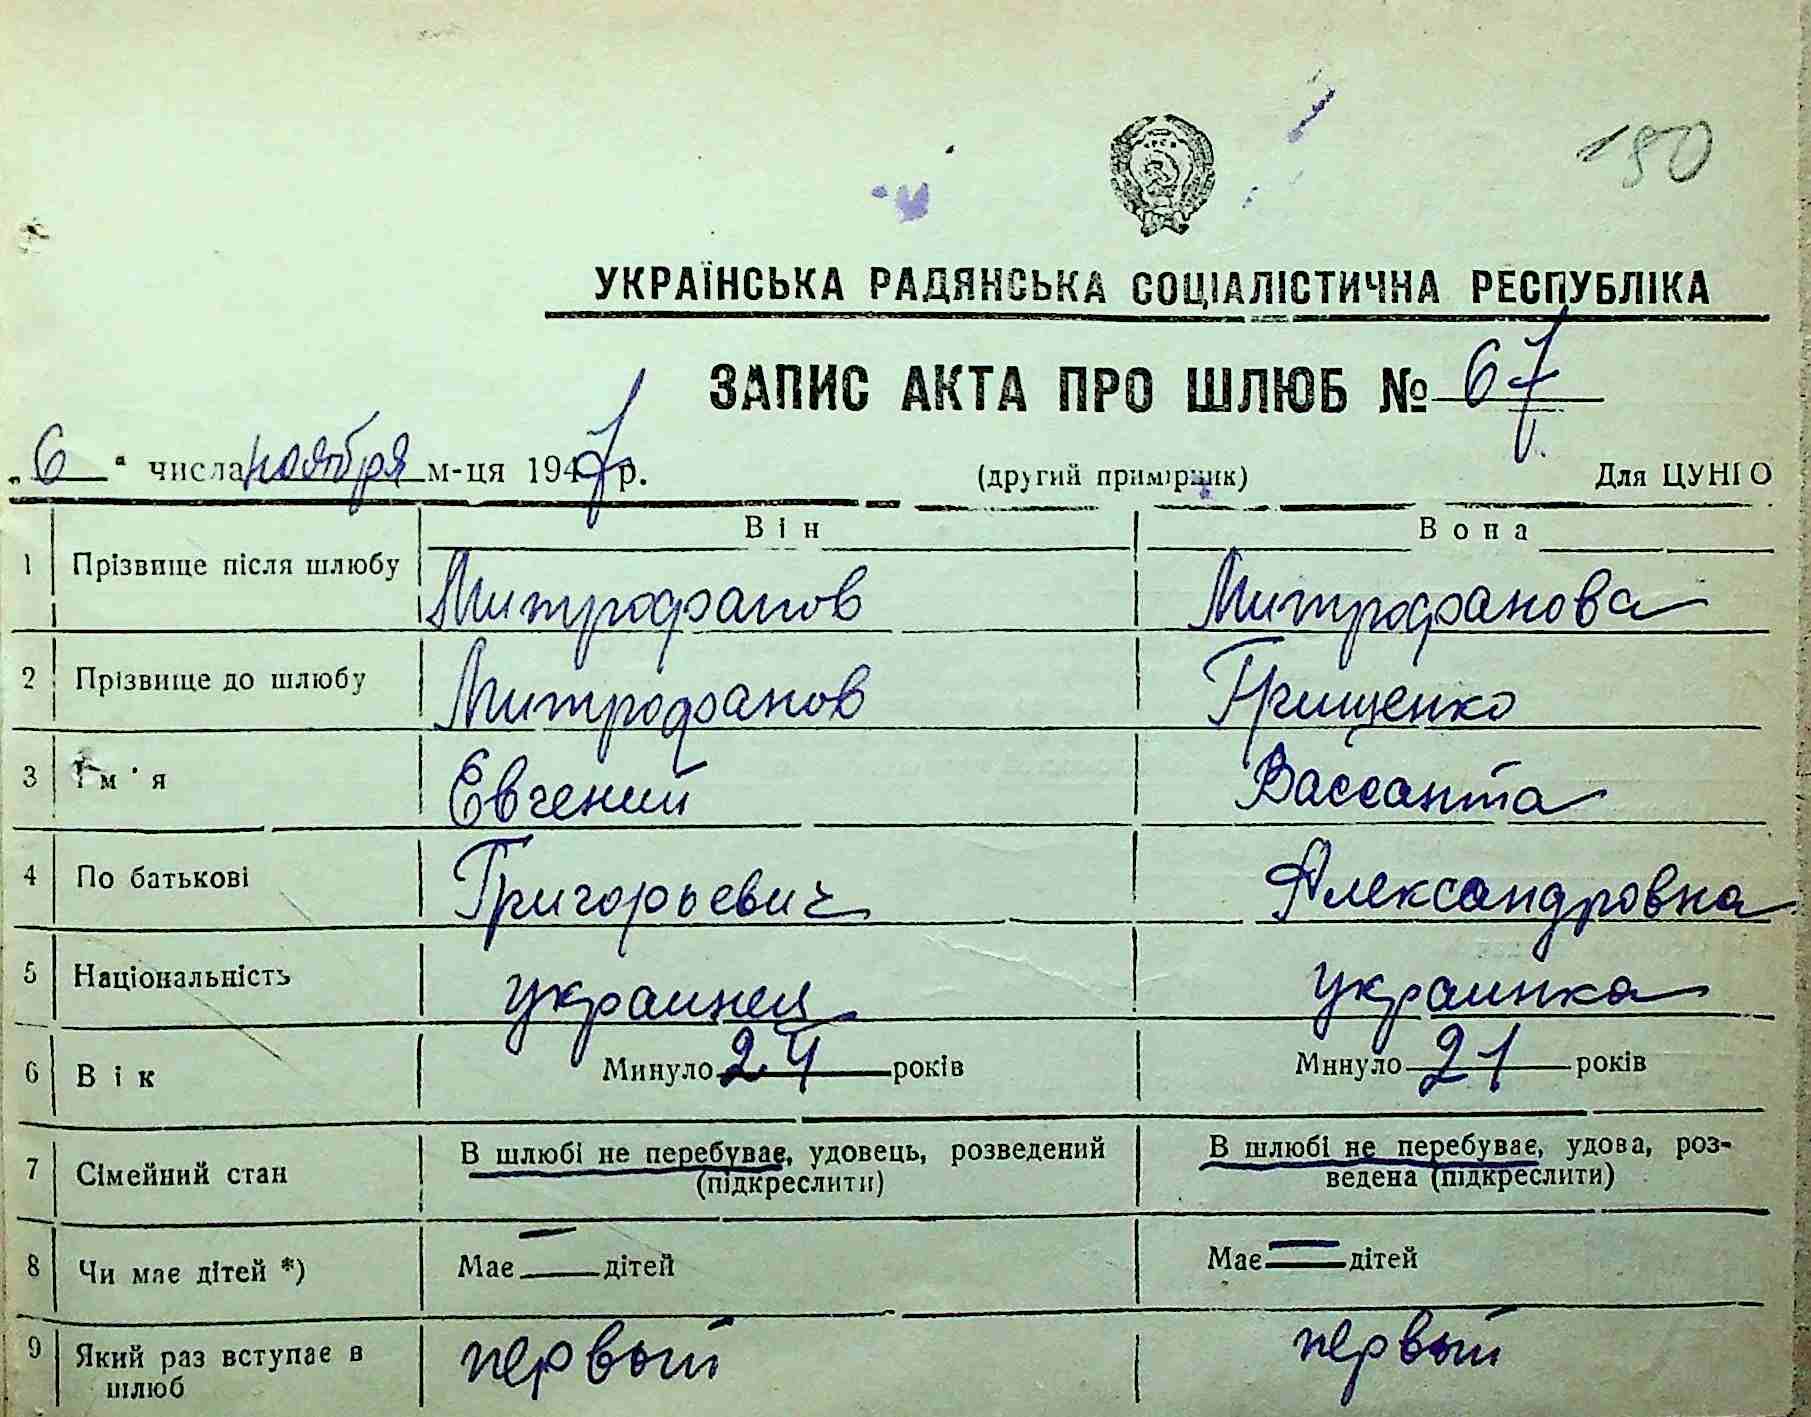 190
УКРАЇНСЬКА РАДЯНСЬКА СОЦІАЛІСТИЧНА РЕСПУБЛІКА
ЗАПИС АКТА ПРО ШЛЮБ № 67
„6“ числа ноября м-ця 1947 р. (другий примірник) Для ЦУНГО
Він Вона
1 Прізвище після шлюбу Митрофанов Митрофанова
2 Прізвище до шлюбу Митрофанов Грищенко
3 Ім'я Евгений Вассанта
4 По батькові Григорьевич Александровна
5 Національність украинец украинка
6 Вік Минуло 24 років Минуло 21 років
7 Сімейний стан В шлюбі не перебуває, удовець, розведений (підкреслити) В шлюбі не перебуває, удова, роз-
ведена (підкреслити)
8 Чи має дітей *) Має — дітей Має — дітей
9 Який раз вступає в первый первый
шлюб